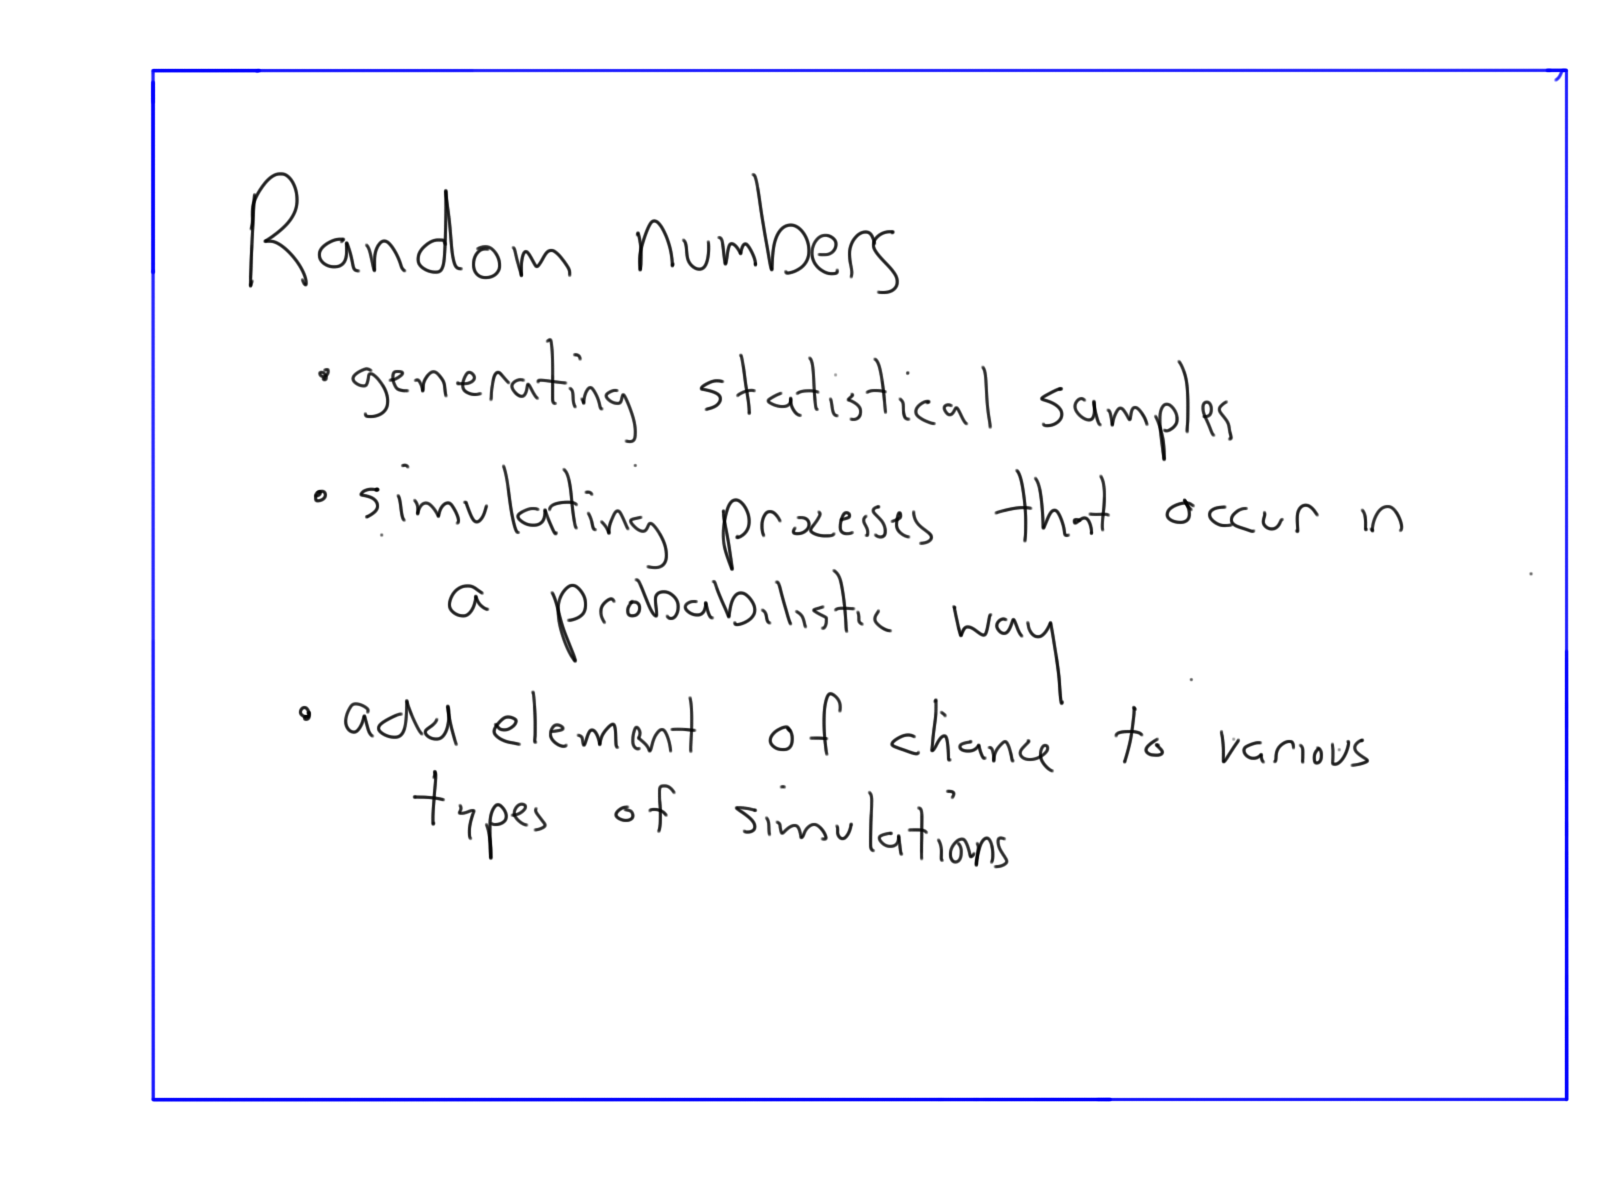 Random numbers
• generating statistical samples
• simulating processes that occur in
a probabilistic way
• add element of chance to various
types of simulations